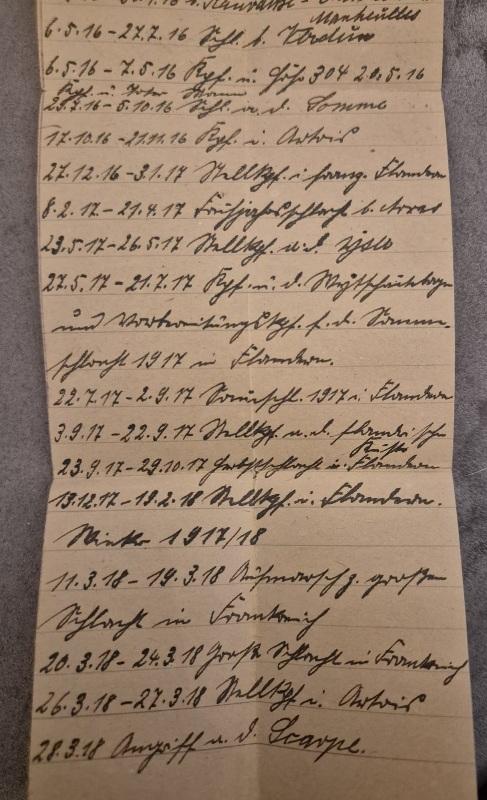 Manheulles
6.5.16 – 27.7.16 Schl. b. Verdun
6.5.16 – 7.5.16 Kpf. u. Höhe 304 20.5.16
Kpf. u. Toter Mann
29.7.16 – 5.10.16 Schl. a. d. Somme
17.10.16 – 21.11.16 Kpf. i. Artois
27.12.16 – 3.1.17 Stellkpf. i. franz. Flandern
8.2.17 – 21.4.17 Frühjahrsschlacht b. Arras
23.5.17 – 26.5.17 Stellkpf. a. d. Yser
27.5.17 – 21.7.17 Kpf. u. d. Wytschaetebogen
und Vorbereitungskpf. f. d. Sommer-
schlacht 1917 in Flandern.
22.7.17 – 2.9.17 Sommerschl. 1917 i. Flandern
3.9.17 – 22.9.17 Stellkpf. a. d. flandrischen
Küste
23.9.17 – 29.10.17 Herbstschlacht i. Flandern
13.12.17 – 19.2.18 Stellkpf. i. Flandern.
Winter 1917/18
11.3.18 – 19.3.18 Aufmarsch z. großen
Schlacht in Frankreich
20.3.18 – 24.3.18 Große Schlacht in Frankreich
26.3.18 – 27.3.18 Stellkpf i. Artois
28.3.18 Angriff a. d. Scarpe.